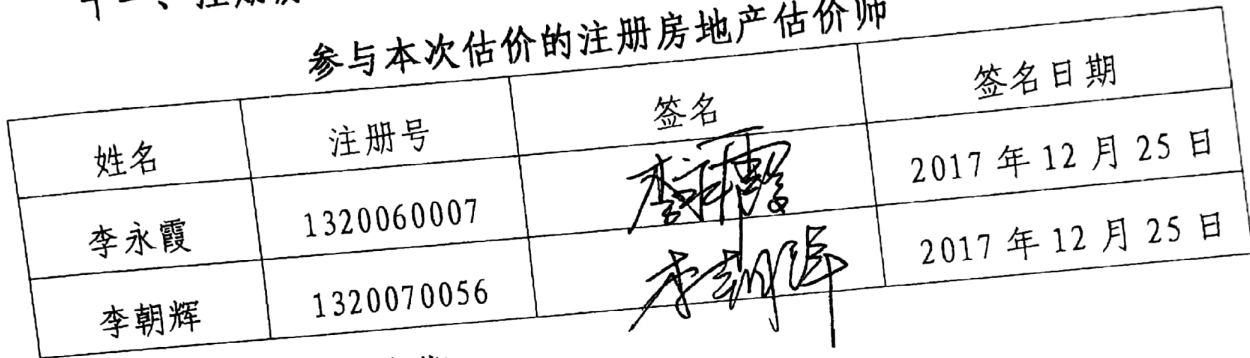 十一、注册房
参与本次估价的注册房地产估价师
姓名 注册号 签名 签名日期
李永霞 1320060007 李永霞 2017 年 12 月 25 日
李朝辉 1320070056 李朝辉 2017 年 12 月 25 日